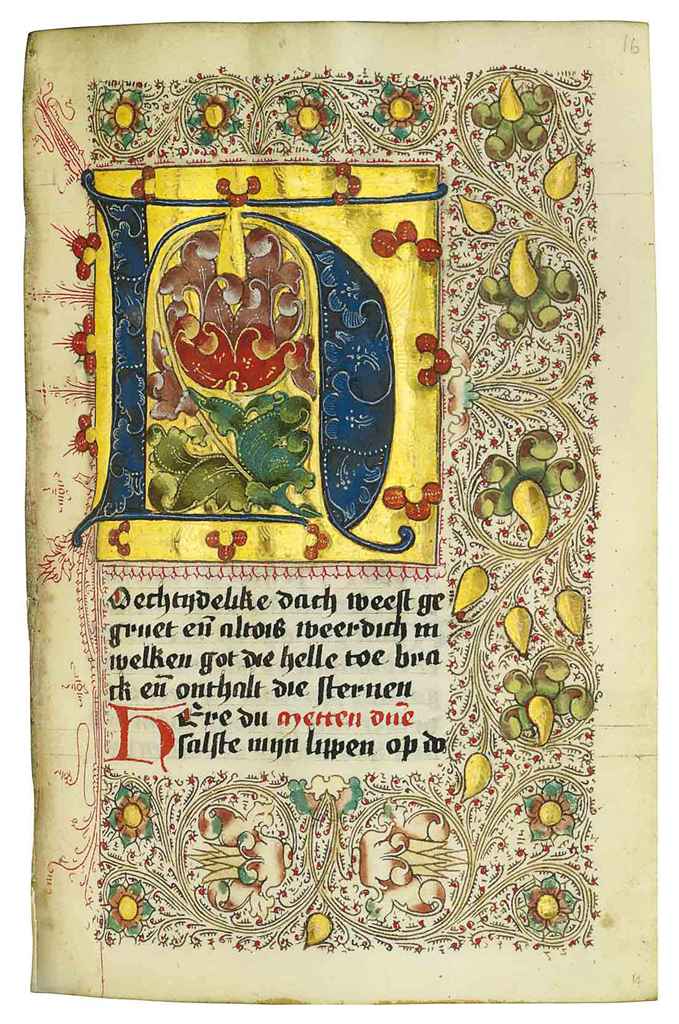 16
H
Oechtydelike dach weest ge
gruet eñ altois weerdich in
welken got die helle toe bra
ck eñ onthalt die sternen
HEre du Metten
salste mijn lippen op do